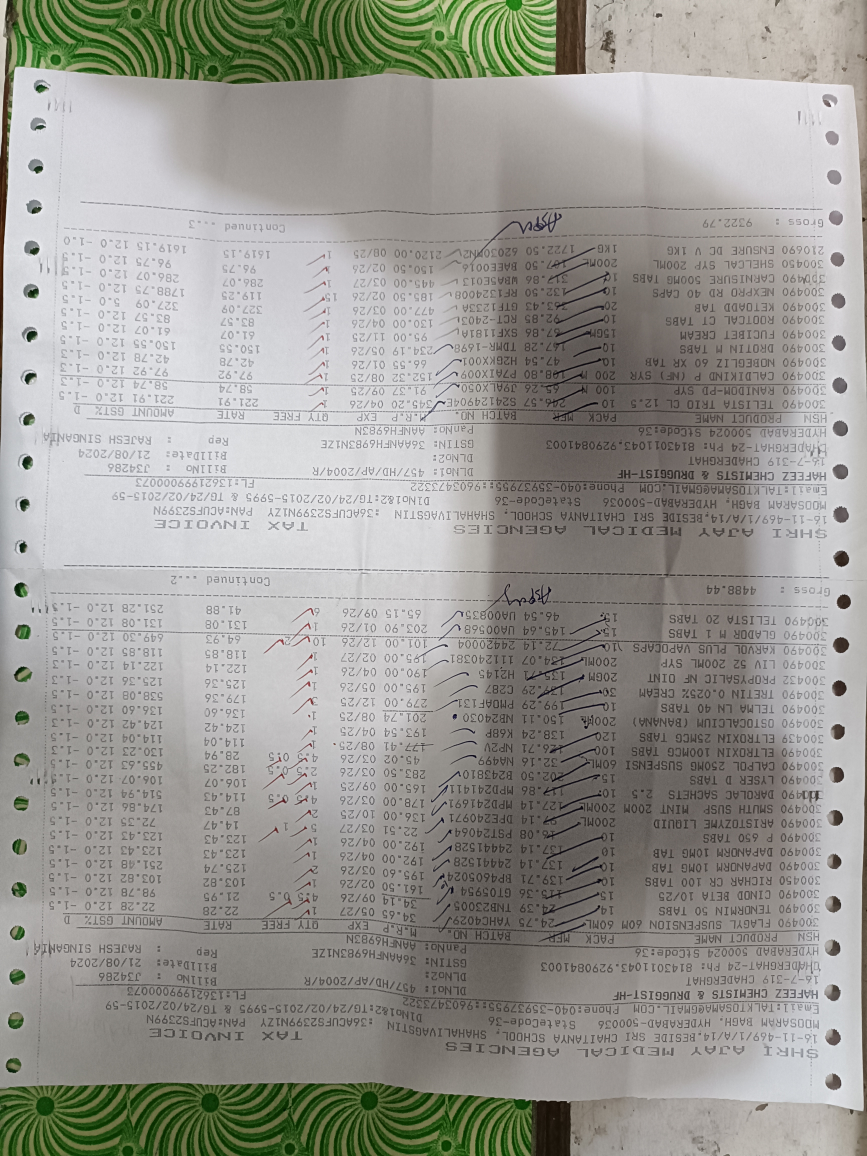 SHRI AJAY MEDICAL AGENCIES TAX INVOICE
16-11-469/1/A/14,BESIDE SRI CHAITANYA SCHOOL, SHAHALIVAGSTIN :36ACUFS2399N1ZY PAN:ACUFS2399N
MOOSARAM BAGH, HYDERABAD-500036 StateCode-36 DlNo1&2:TG/24/02/2015-5995 & TG/24/02/2015-59
Email:TALKTOSAMAGMAIL.COM Phone:040-35937955::9603473322 FL:13621999000073
HAFEEZ CHEMISTS & DRUGGIST-HF DLNO1: 457/HD/AP/2004/R BillNo : J34286
16-7-319 CHADERGHAT DLNO2: BillDate: 21/08/2024
CHADERGHAT-24 Ph: 8143011043,9290841003 GSTIN: 36AANFH6983N1ZE Rep : RAJESH SINGANIA
HYDERABAD 500024 StCode:36 PanNo: AANFH6983N
HSN PRODUCT NAME PACK MFR BATCH NO. M.R.P EXP QTY FREE RATE AMOUNT GST% D
300490 FLAGYL SUSPENSION 60M 60ML 24.75 YAHC4029 34.65 05/27 1 22.28 22.28 12.0 -1.5
300490 TENORMIN 50 TABS 14 24.39 TNB23005 34.14 09/26 4.5 0.5 21.95 98.78 12.0 -1.5
300490 CINOD BETA 10/25 15 115.36 GT05954 161.50 02/26 1 103.82 103.82 12.0 -1.5
300450 RICHAR CR 100 TABS 10 139.71 BP4605024 195.60 03/26 2 125.74 251.48 12.0 -1.5
300490 DAPANORM 10MG TAB 10 137.14 24441528 192.00 04/26 1 123.43 123.43 12.0 -1.5
300490 DAPANORM 10MG TAB 10 137.14 24441528 192.00 04/26 1 123.43 123.43 12.0 -1.5
300490 P 650 TABS 10 16.08 PST24064 22.51 03/27 5 1 14.47 72.35 12.0 -1.5
300490 ARISTOZYME LIQUID 200ML 97.14 DPE240971 136.00 10/25 2 87.43 174.86 12.0 -1.5
300490 SMUTH SUSP MINT 200M 200ML 127.14 MQD241691 178.00 03/26 4.5 0.5 114.43 514.94 12.0 -1.5
300490 DAROLAC SACHETS 2.5 10 117.86 MPD241411 165.00 09/25 1 106.07 106.07 12.0 -1.5
300490 LYSER D TABS 15 202.50 B243810 283.50 03/26 2.5 0.5 182.25 455.63 12.0 -1.5
300490 CALPOL 250MG SUSPENSI 60ML 32.16 NA499 45.02 03/26 4.5 0.5 28.94 130.23 12.0 -1.3
300490 ELTROXIN 100MCG TABS 100 126.71 NP2V 177.41 08/25 1 114.04 114.04 12.0 -1.5
300439 ELTROXIN 25MCG TABS 120 138.24 K68P 193.54 04/25 1 124.42 124.42 12.0 -1.5
300490 OSTOCALCIUM (BANANA) 200ML 150.11 NB24030 201.74 08/25 1 136.60 136.60 12.0 -1.5
300490 TELMA LN 40 TABS 10 199.29 PM0AP131 279.00 12/25 3 179.36 538.08 12.0 -1.5
300490 TRETIN 0.025% CREAM 30 139.29 C287 195.00 05/26 1 125.36 125.36 12.0 -1.5
300432 PROPYSALIC NF OINT 20GM 135.71 H2145 190.00 04/26 1 122.14 122.14 12.0 -1.3
300490 LIV 52 200ML SYP 200ML 134.07 112400381 195.00 02/27 1 118.85 118.85 12.0 -1.5
300490 KARVOL PLUS VAPOCAPS 10 72.14 24442004 101.00 12/26 10 2 64.93 649.30 12.0 -1.5
300490 GLADOR M 1 TABS 15 145.64 UA00568 203.90 01/26 1 131.08 131.08 12.0 -1.5
300490 TELISTA 20 TABS 15 46.54 UA00835 65.15 09/26 6 41.88 251.28 12.0 -1.5
Gross : 4488.44 Continued ...2
SHRI AJAY MEDICAL AGENCIES TAX INVOICE
16-11-469/1/A/14,BESIDE SRI CHAITANYA SCHOOL, SHAHALIVAGSTIN :36ACUFS2399N1ZY PAN:ACUFS2399N
MOOSARAM BAGH, HYDERABAD-500036 StateCode-36 DlNo1&2:TG/24/02/2015-5995 & TG/24/02/2015-59
Email:TALKTOSAMAGMAIL.COM Phone:040-35937955::9603473322 FL:13621999000073
HAFEEZ CHEMISTS & DRUGGIST-HF DLNO1: 457/HD/AP/2004/R BillNo : J34286
16-7-319 CHADERGHAT DLNO2: BillDate: 21/08/2024
CHADERGHAT-24 Ph: 8143011043,9290841003 GSTIN: 36AANFH6983N1ZE Rep : RAJESH SINGANIA
HYDERABAD 500024 StCode:36 PanNo: AANFH6983N
HSN PRODUCT NAME PACK MFR BATCH NO. M.R.P EXP QTY FREE RATE AMOUNT GST% D
300490 TELISTA TRIO CL 12.5 10 246.57 S224124904E 345.20 04/26 1 221.91 221.91 12.0 -1.5
300490 RANIDOM-PD SYP 100 M 65.26 JPALX050 91.37 09/25 1 58.74 58.74 12.0 -1.3
300490 CALDIKIND P (NF) SYR 200 M 108.80 P7AIX009 152.32 08/25 1 97.92 97.92 12.0 -1.3
300490 NOBEGLIZ 60 XR TAB 10 47.54 HZGKX001 66.55 01/26 1 42.78 42.78 12.0 -1.3
300490 DROTIN M TABS 10 167.28 TDMM-1698 234.19 05/26 1 150.55 150.55 12.0 -1.5
300490 FUCIBET CREAM 15GM 67.86 SXF1181A 95.00 11/25 1 61.07 61.07 12.0 -1.5
300490 ROOTCAL CT TABS 10 92.85 RCT-2403 130.00 04/26 1 83.57 83.57 12.0 -1.5
300490 KETOADD TAB 20 363.43 GTF1233A 477.00 03/26 1 327.09 327.09 5.0 -1.5
300490 NEXPRO RD 40 CAPS 10 132.50 RF1324008 185.50 02/26 15 119.25 1788.75 12.0 -1.5
300490 CARNISURE 500MG TABS 10 317.86 WBASE013 445.00 03/27 1 286.07 286.07 12.0 -1.5
300450 SHELCAL SYP 200ML 200ML 107.50 BAEE0016 150.50 02/26 1 96.75 96.75 12.0 -1.5
210690 ENSURE DC V 1KG 1KG 1722.50 62030RN2 2120.00 08/25 1 1619.15 1619.15 12.0 -1.0
Gross : 9322.79 Continued ...3